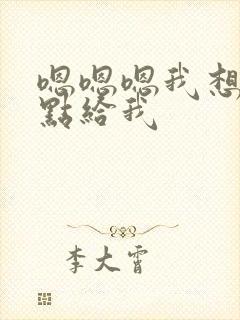 嗯嗯嗯我想
點給我
李大霄